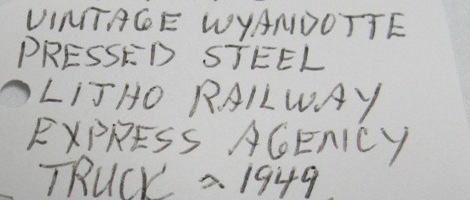 VINTAGE WYANDOTTE
PRESSED STEEL
LITHO RAILWAY
EXPRESS AGENCY
TRUCK ~ 1949